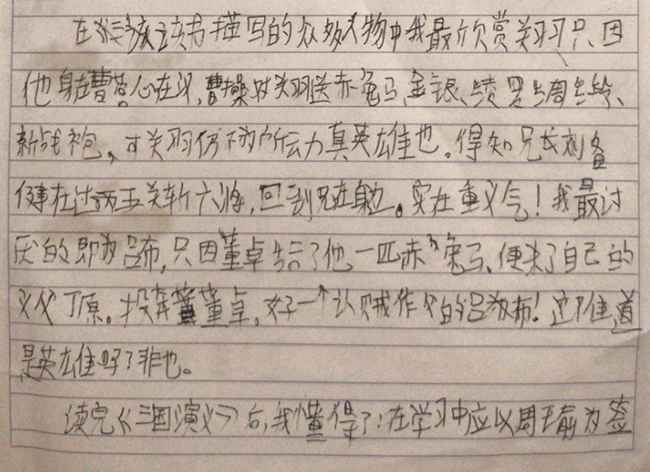 在该书描写的众多人物中我最欣赏关羽只因
他身在曹营心在汉,曹操对关羽送赤兔马、金银、绫罗绸缎、
新战袍,可关羽仍不为所动力真英雄也。得知兄长刘备
健在过五关斩六将,回到兄长身边。实在重义气!我最讨
厌的即为吕布,只因董卓给了他一匹赤兔马、便杀了自己的
义父丁原。投奔董卓,好一个认贼作父的吕布!这难道
是英雄吗?非也。
读完《三国演义》后,我懂得了:在学习中应以周瑜前为鉴